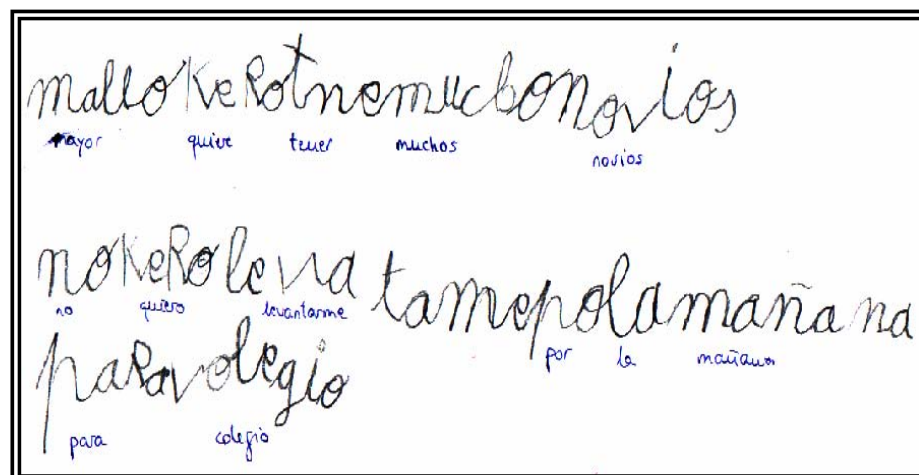 malloKeRotnemucbonovios
mayor quiere tener muchos novios
noKeRolevatamepolamañana
no quiero levantarme por la mañana
paRavolegio
para colegio